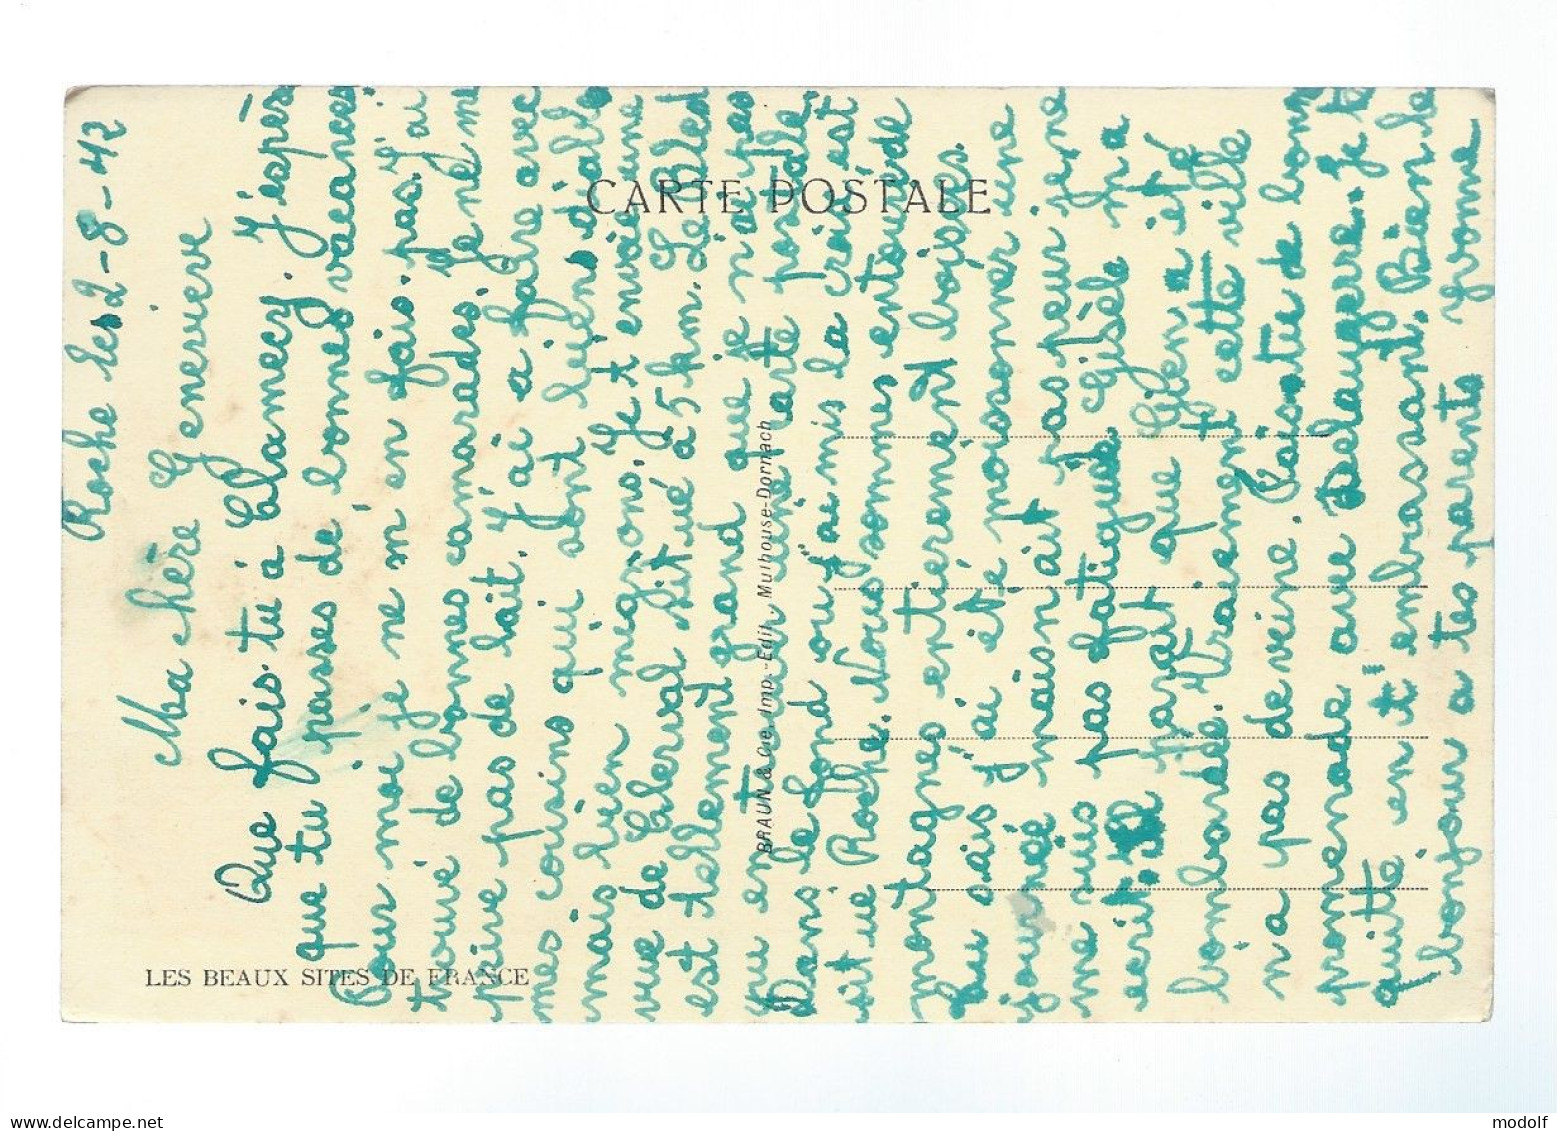 CARTE POSTALE
LES BEAUX SITES DE FRANCE
BRAUN & Cie, Imp.-Edit., Mulhouse-Dornach
Roche les 2-8-42
Ma chère Genevieve
Que fais-tu à Clamecy. J'espèr
que tu passes de bonnes vacances
Pour moi je ne m'en fais pas. J'ai
trouvé de bonnes camarades. Je ne m
prive pas de lait. J'ai a faire avec
mes cousins qui sont bien diable
mais bien mignons. Je t'envoie une
vue de Clerval situé à 5 km. Le Doubs
est tellement grand que je n'ai pas
pu en une carte postale.
Dans le fond ou j'ai mis la croix est
situé Roche. Nous sommes entouré de
montagnes entierement boisées.
Tu sais j'ai été moissonner une
journée mais on ait pas peur je ne
me suis pas fatiguée. Gisèle m'a
ecrit, il parait que Gien a été
bombardée. Vraiment cette ville
n'a pas de veine. Fais tu de bonn
promenade avec Delaugerre. Je te
quitte en t'embrassant. Bien le
bonjour a tes parents Yvonne
modolf